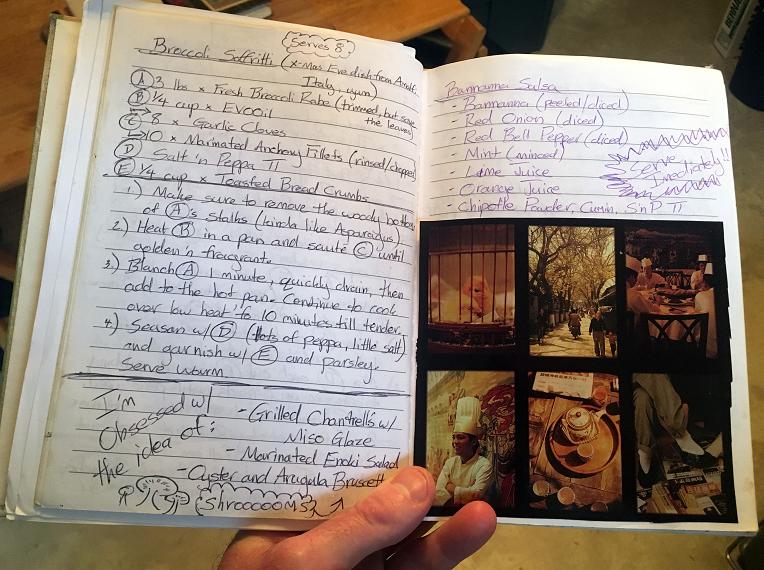 Serves 8
Broccoli Soffritti (X-Mas Eve dish from Amalfi,
Italy, yum)
A 3 lbs x Fresh Broccoli Rabe (trimmed, but save
the leaves)
B 1/4 cup x EVOOil
C 8 x Garlic Cloves
10 x Marinated Anchovy Fillets (rinsed/chopped)
D Salt 'n Peppa TT
E 1/4 cup x Toasted Bread Crumbs
1.) Make sure to remove the woody bottoms
of A's stalks (kinda like Asparagus)
2.) Heat B in a pan and sauté C until
golden 'n fragrant.
3.) Blanch A 1 minute, quickly drain, then
add to the hot pan. Continue to cook
over low heat 'to 10 minutes till tender.
4.) Season w/ D (lots of peppa, little salt)
and garnish w/ E and parsley.
Serve warm
I'm
Obsessed w/
the idea of:
- Grilled Chantrell's w/
Miso Glaze
- Marinated Enoki Salad
- Oyster and Arugula Bruscett
Shroooooms
Bannanna Salsa
- Bannanna (peeled/diced)
- Red Onion (diced)
- Red Bell Pepper (diced)
- Mint (minced)
- Lime Juice
- Orange Juice
- Chipotle Powder, Cumin, S'n P TT
Serve
Imediately!!